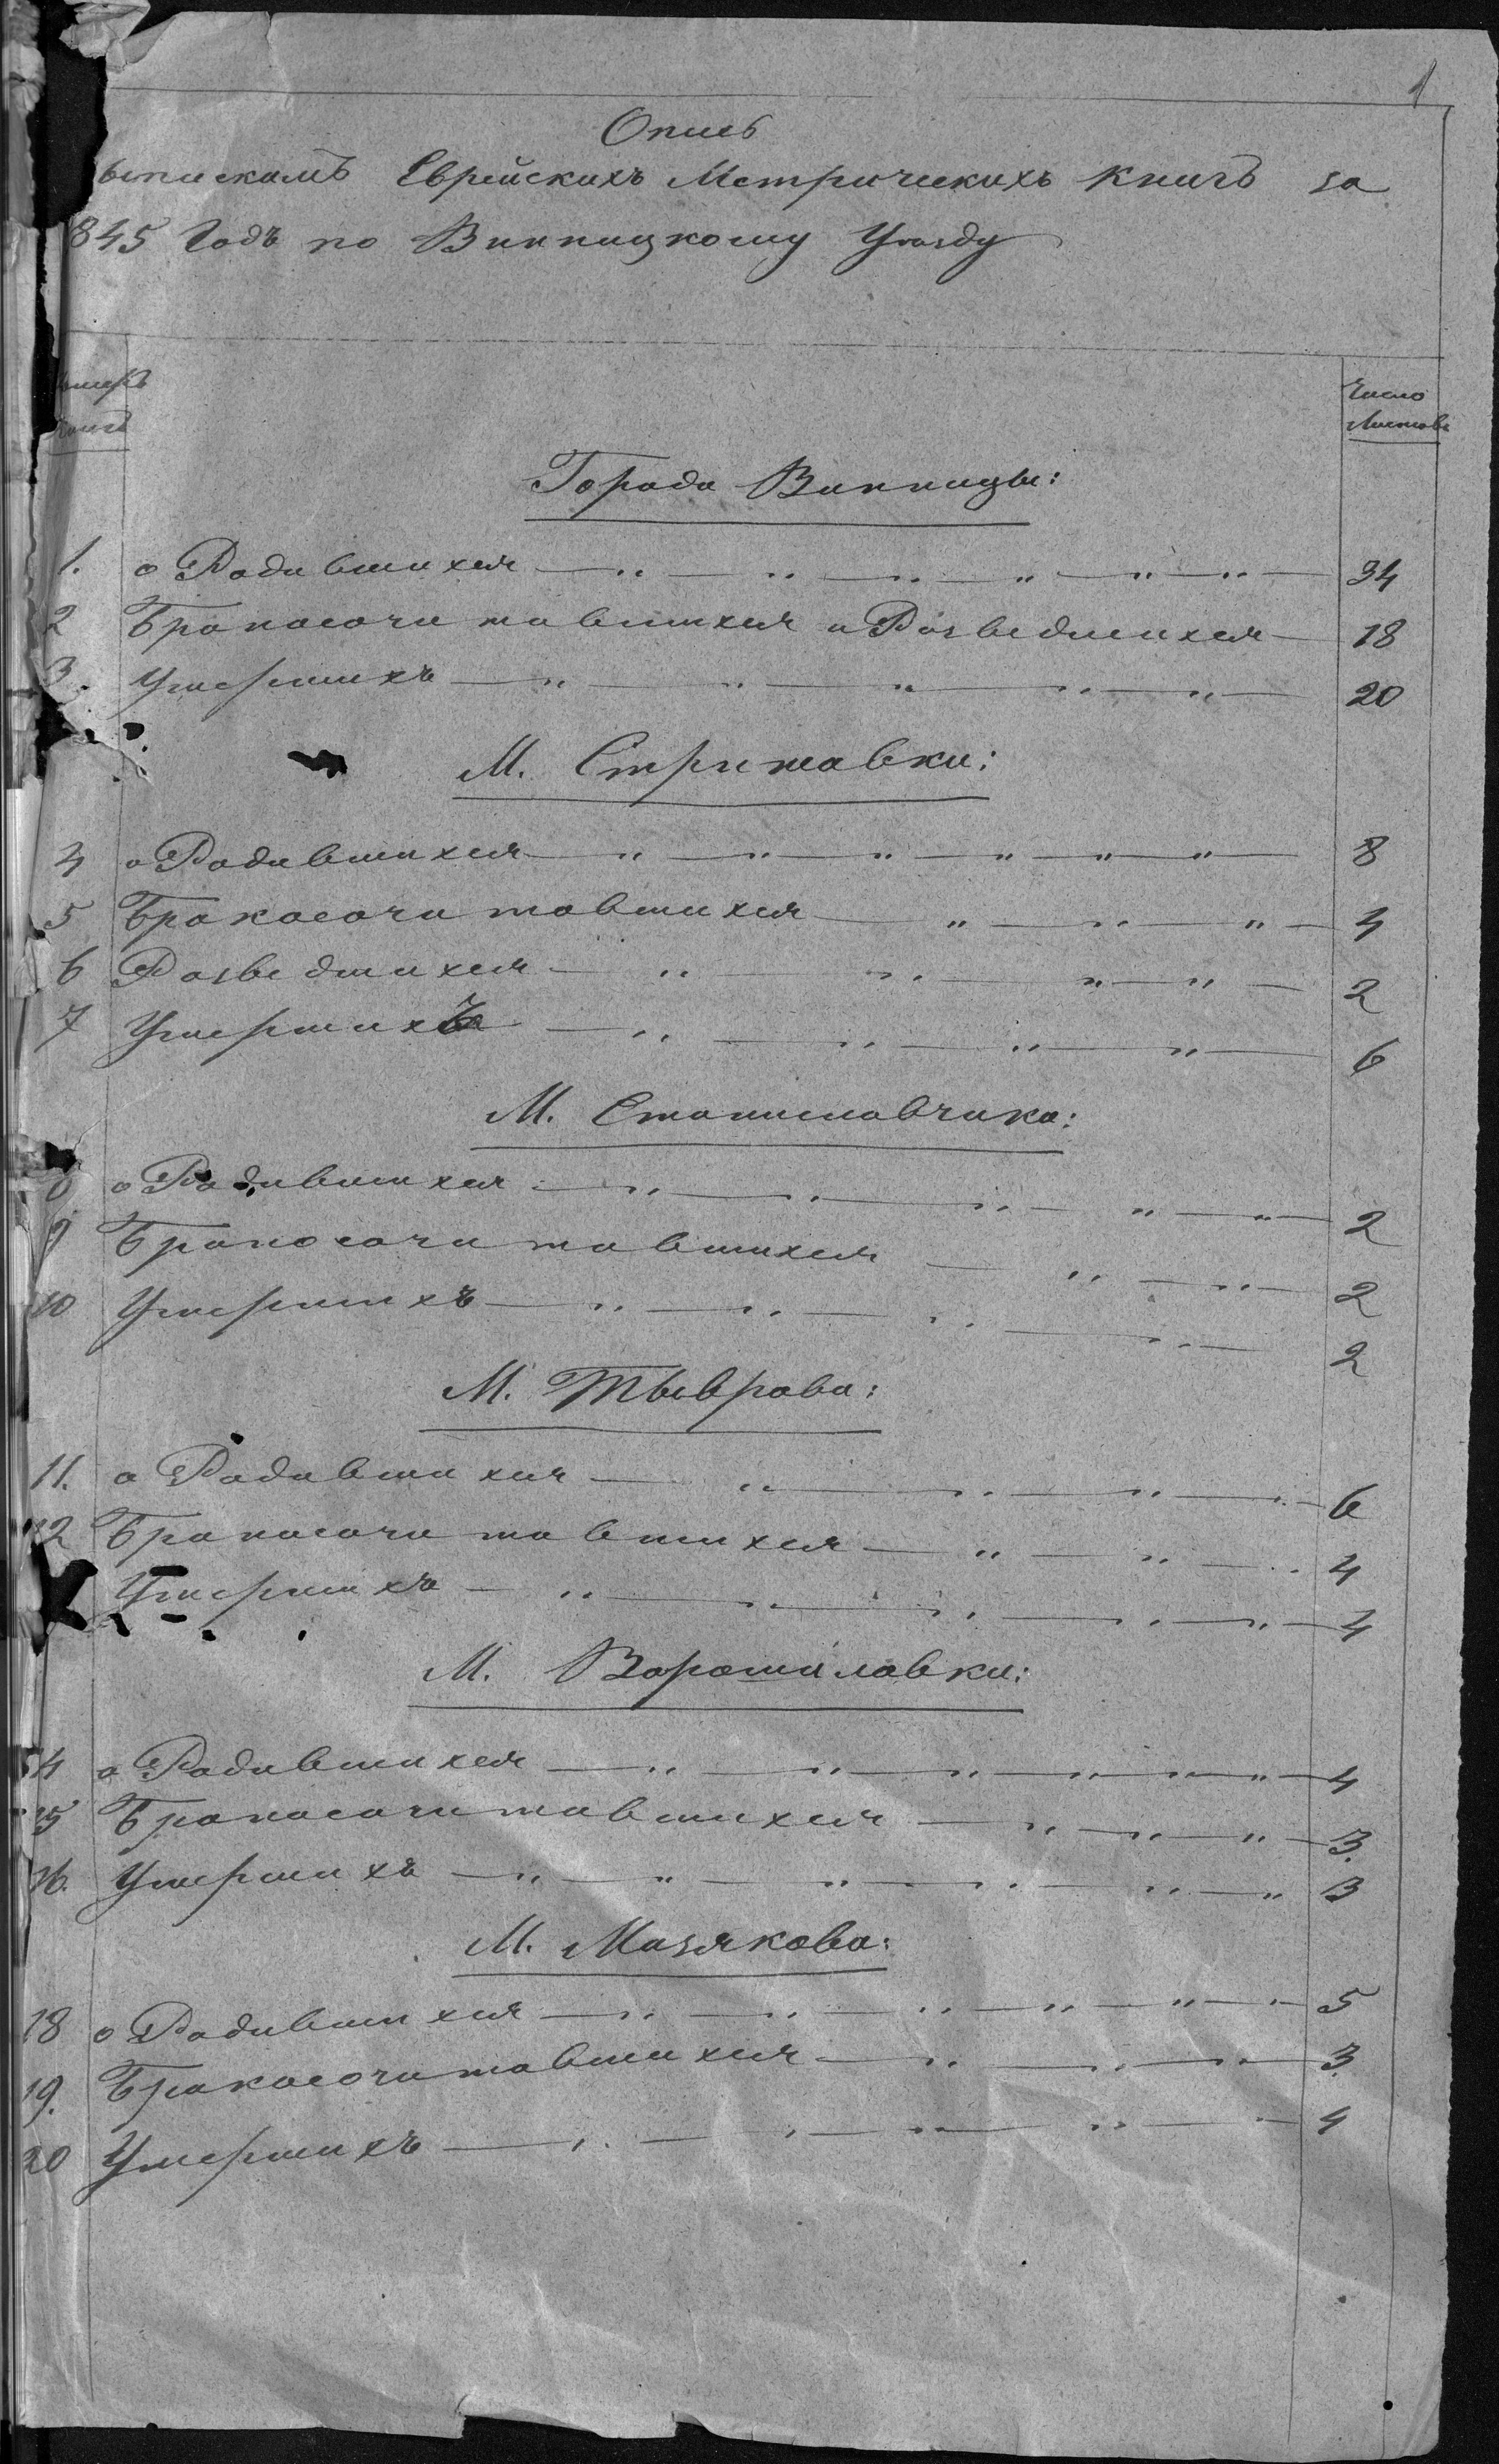 1
Опись
ыпискамъ Еврейскихъ Метрическихъ Книгъ за
845 Годъ по Винницкому Уѣзду
Число
Листовъ
Города Винницы:
1. о Родившихся 34
2 Бракосочитавшихся и Розведшихся 18
3. Умершихъ 20
М. Стрижавки:
4 о Родившихся 8
5 Бракосочитавшихся 4
6 Розведшихся 2
7 Умершихъ 6
М. Станиславчика:
о Родившихся 2
9 Бракосочитавшихся 2
10 Умершихъ 2
М. Тыврова:
11. о Родившихся 6
12 Бракосочитавшихся 4
Умершихъ 4
М. Ворошиловки:
14 о Родившихся 4
15 Бракосочитавшихся 3.
16. Умершихъ 3
М. Мизякова:
18 о Родившихся 5
19. Бракосочитавшихся 3.
20 Умершихъ 4